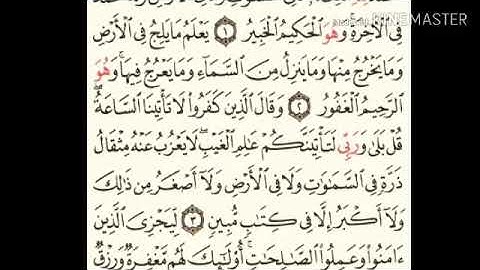 KINEMASTER
فِي الْأَخِرَةِ وَهْوَ الْحَكِيمُ الْخَبِيرُ ١ يَعْلَمُ مَا يَلِجُ فِي الْأَرْضِ
وَمَا يَخْرُجُ مِنْهَا وَمَا يَنزِلُ مِنَ السَّمَآءِ وَمَا يَعْرُجُ فِيهَا وَهْوَ
الرَّحِيمُ الْغَفُورُ ٢ وَقَالَ الَّذِينَ كَفَرُوا لَا تَأْتِينَا السَّاعَةُ
قُلْ بَلَىٰ وَرَبِّي لَتَأْتِيَنَّكُمْ عَلِمِ الْغَيْبِ لَا يَعْزُبُ عَنْهُ مِثْقَالُ
ذَرَّةٍ فِي السَّمَوَٰتِ وَلَا فِي الْأَرْضِ وَلَا أَصْغَرُ مِن ذَٰلِكَ
وَلَا أَكْبَرُ إِلَّا فِي كِتَٰبٍ مُّبِينٍ ٣ لِيَجْزِيَ الَّذِينَ
ءَامَنُوا وَعَمِلُوا الصَّٰلِحَٰتِ أُوْلَٰئِكَ لَهُم مَّغْفِرَةٌ وَرِزْقٌ